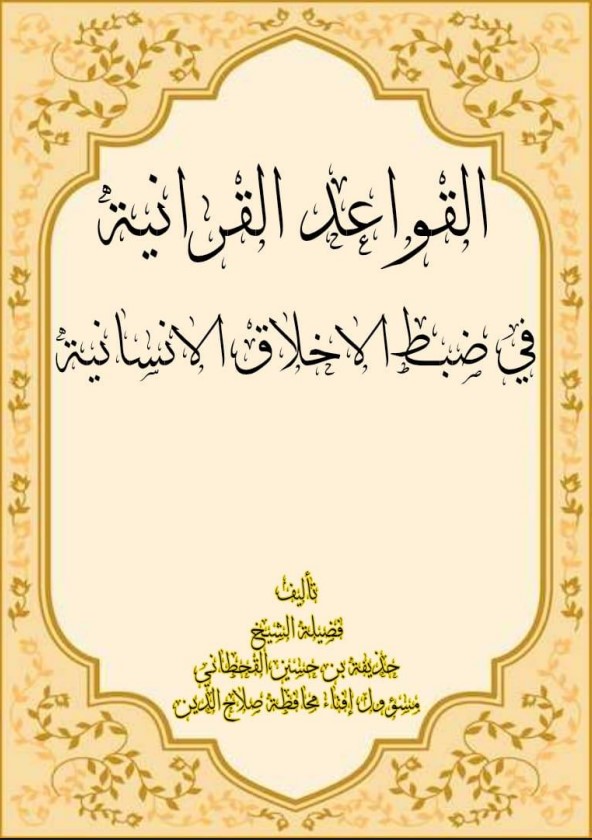 القواعد القرانية
في ضبط الاخلاق الانسانية
تأليف
فضيلة الشيخ
حذيفة بن حسين القحطاني
مسؤول إفتاء محافظة صلاح الدين